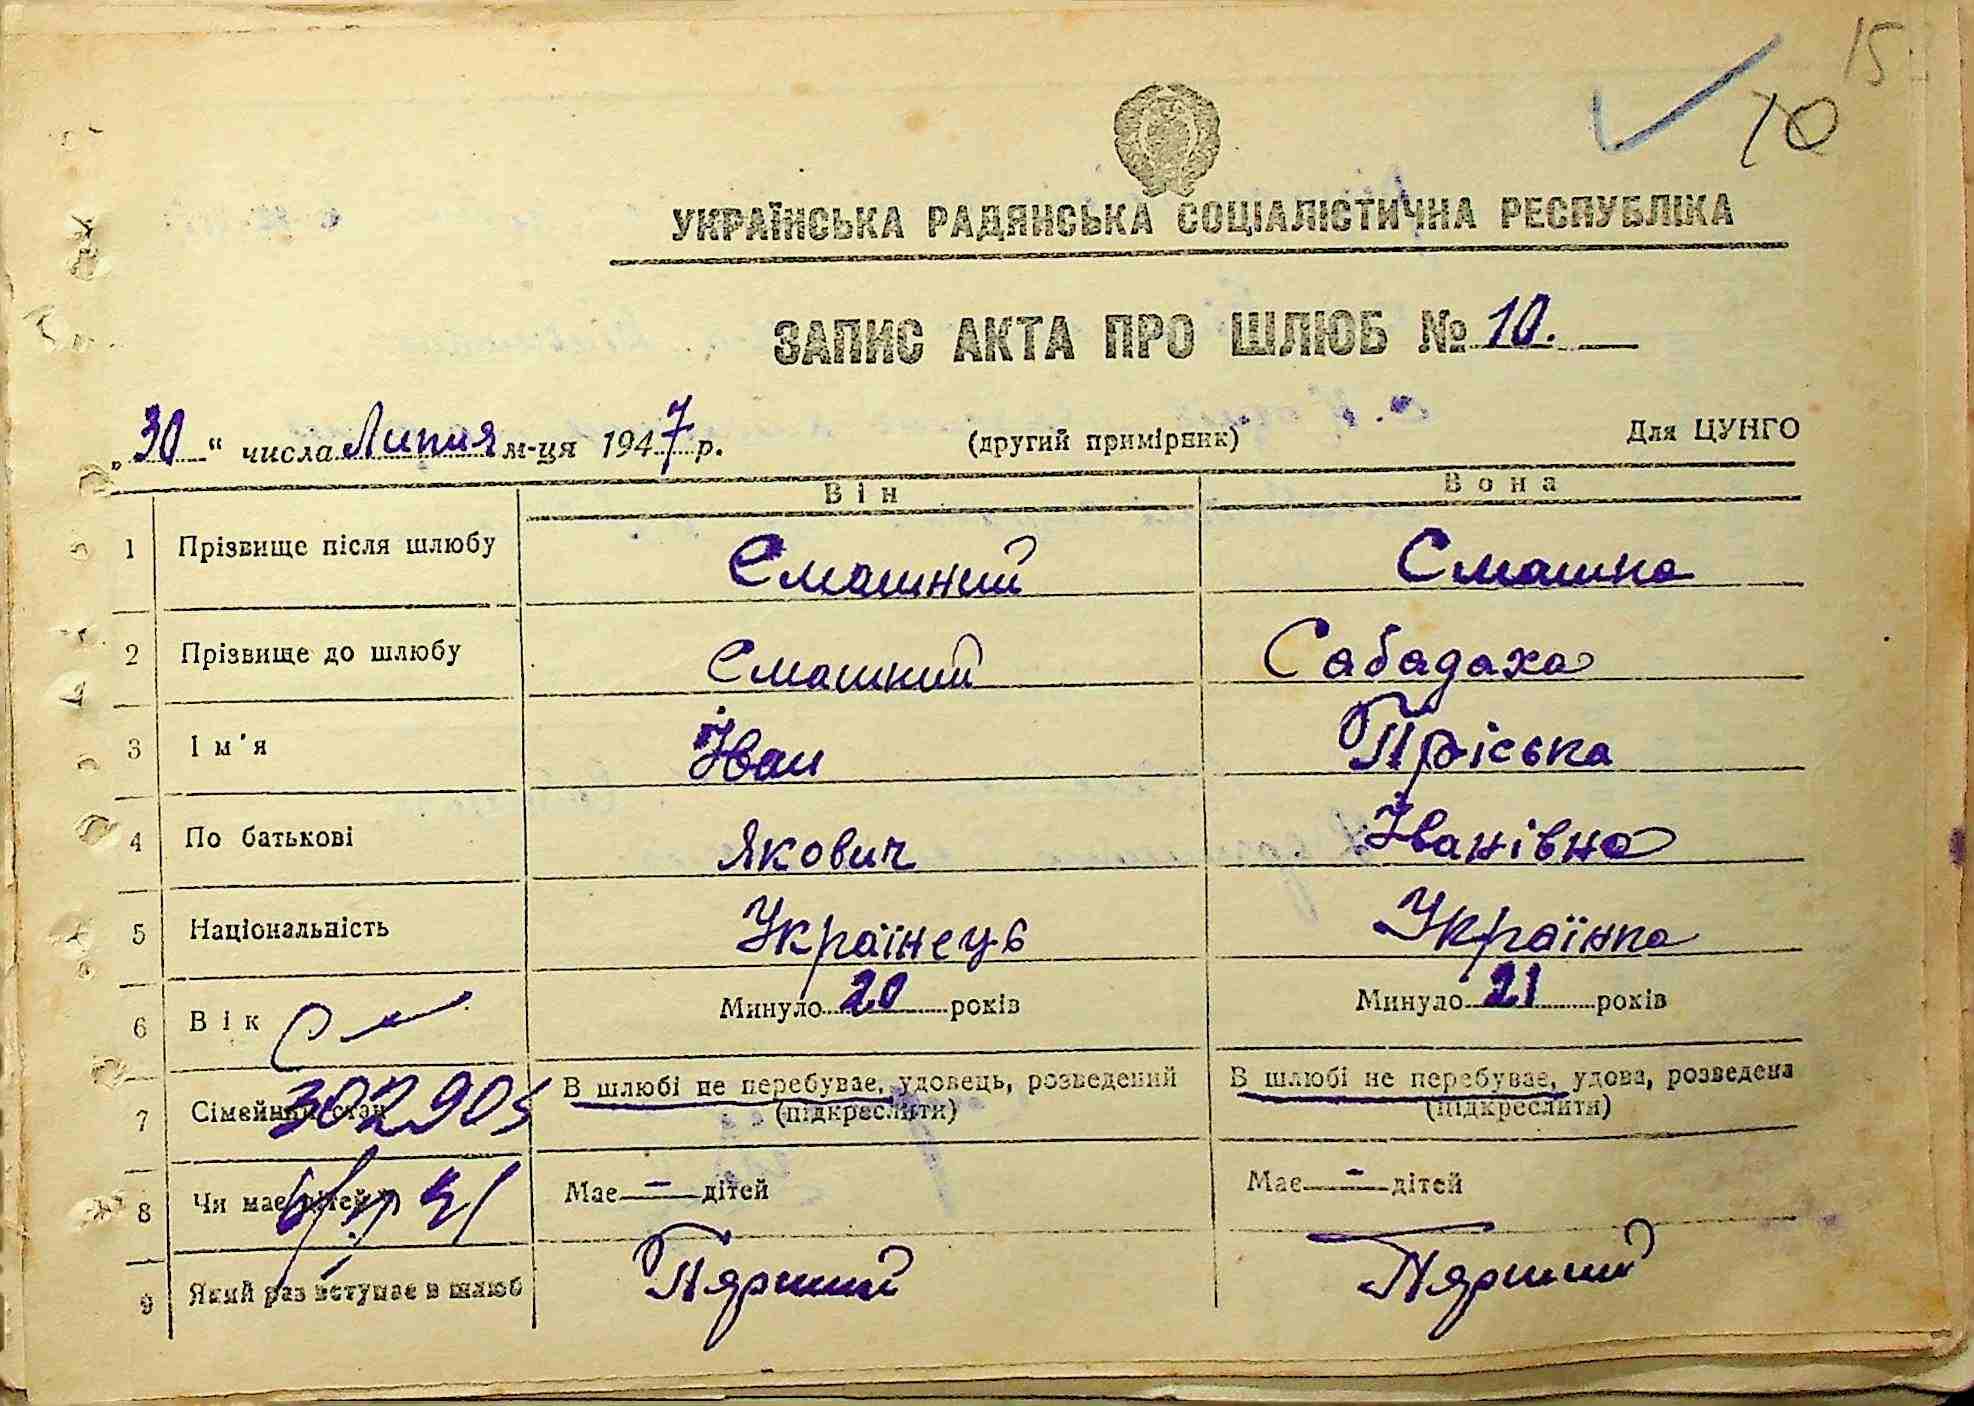 15
10
УКРАЇНСЬКА РАДЯНСЬКА СОЦІАЛІСТИЧНА РЕСПУБЛІКА
ЗАПИС АКТА ПРО ШЛЮБ № 10.
„30“ числа Липня м-ця 1947 р. (другий примірник) Для ЦУНГО
Він Вона
1 Прізвище після шлюбу Смашний Смашна
2 Прізвище до шлюбу Смашний Сабадаха
3 Ім'я Іван Пріська
4 По батькові Якович Іванівна
5 Національність Українець Українка
6 Вік Минуло 20 років Минуло 21 років
7 Сімейний стан 302905 В шлюбі не перебуває, удовець, розведений В шлюбі не перебуває, удова, розведена
(підкреслити) (підкреслити)
8 Чи має дітей Має - дітей Має - дітей
9 Який раз вступає в шлюб Пярший Пярший